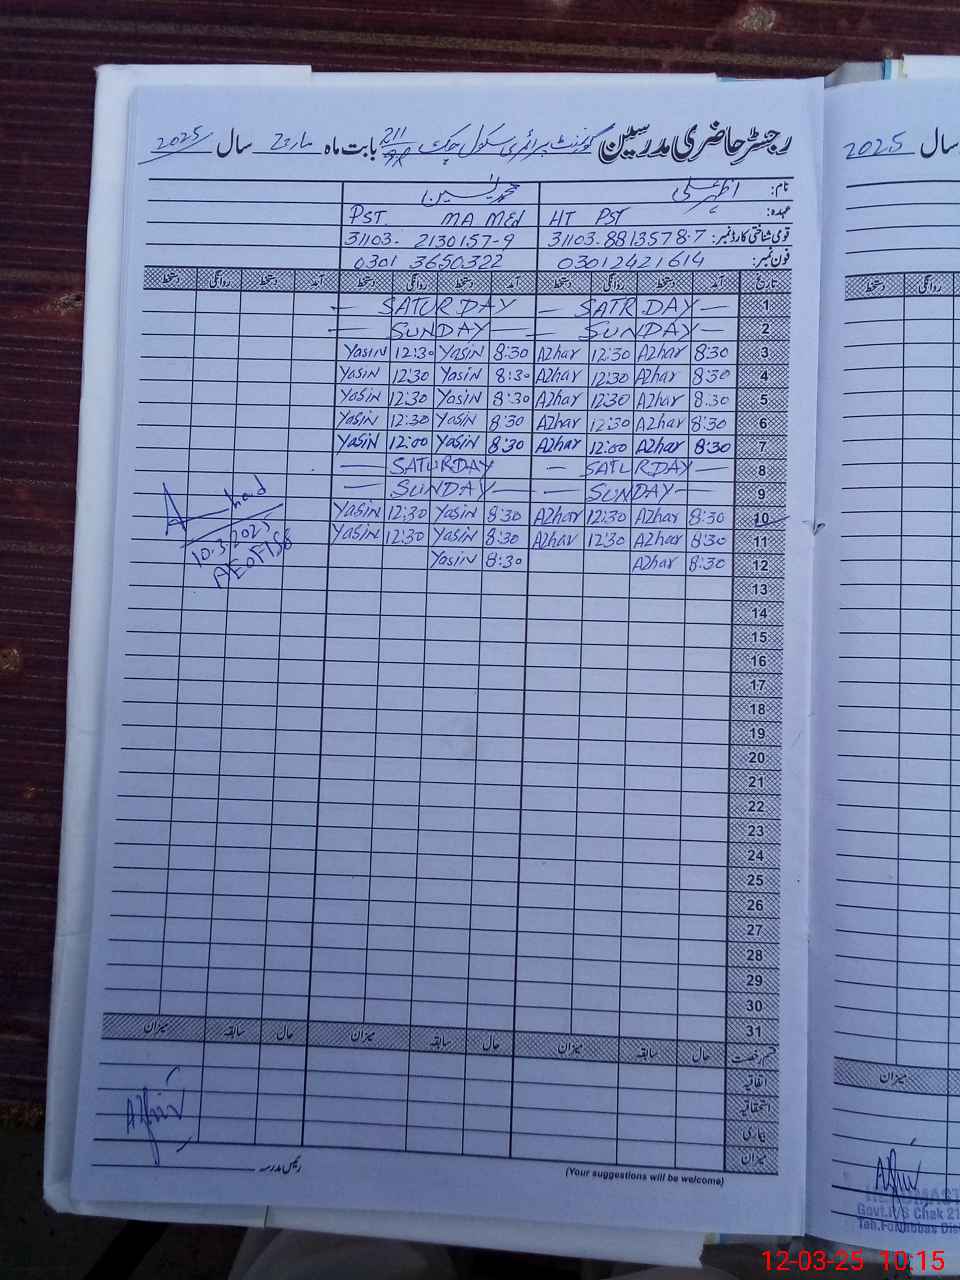 رجسٹر حاضری مدرسین گورنمنٹ پرائمری سکول چک 211/9R بابت ماہ مارچ سال 2025
نام: اظہر علی محمد یٰسین
عہدہ: HT PST PST MA MEd
قومی شناختی کارڈ نمبر: 31103-8813578-7 31103-2130157-9
فون نمبر: 03012421614 0301 3650322
تاریخ آمد دستخط روانگی دستخط آمد دستخط روانگی دستخط آمد دستخط روانگی دستخط
1 — SATRDAY — — SATURDAY
2 — SUNDAY — — SUNDAY —
3 8:30 Azhar 12:30 Azhar 8:30 Yasin 12:30 Yasin
4 8:30 Azhar 12:30 Azhar 8:30 Yasin 12:30 Yasin
5 8:30 Azhar 12:30 Azhar 8:30 Yasin 12:30 Yasin
6 8:30 Azhar 12:30 Azhar 8:30 Yasin 12:30 Yasin
7 8:30 Azhar 12:00 Azhar 8:30 Yasin 12:00 Yasin
8 — SATURDAY — — SATURDAY
9 — SUNDAY — — SUNDAY —
10 8:30 Azhar 12:30 Azhar 8:30 Yasin 12:30 Yasin
11 8:30 Azhar 12:30 Azhar 8:30 Yasin 12:30 Yasin
12 8:30 Azhar 8:30 Yasin
13
14
15
16
17
18
19
20
21
22
23
24
25
26
27
28
29
30
31
10.3.2025
قسم رخصت حال سابقہ میزان حال سابقہ میزان حال سابقہ میزان
اتفاقیہ
استحقاقیہ
بیماری
میزان
رئیس مدرسہ
(Your suggestions will be welcome)
سال 2025
روانگی دستخط
میزان
Govt.P/S Chak 21
12-03-25 10:15